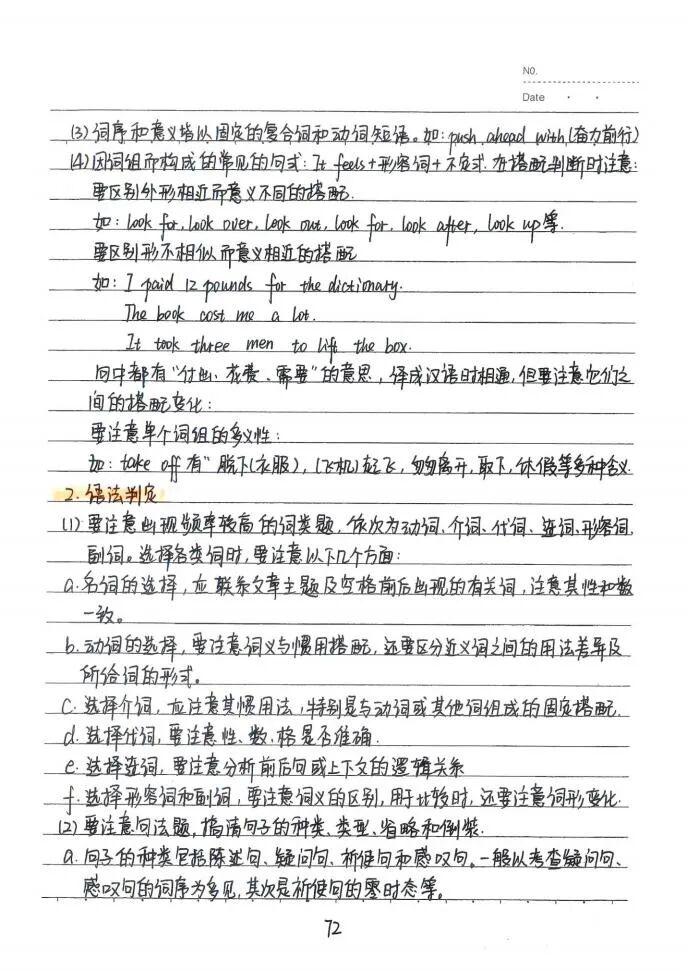 NO.
Date · ·
(3) 词序和意义皆以固定的复合词和动词短语。如: push ahead with (奋力前行)
(4) 因词组而构成的常见的句式: It feels+形容词+不定式. 在搭配判断时注意:
要区别外形相近而意义不同的搭配.
如: look for, look over, look out, look for, look after, look up等.
要区别形不相似而意义相近的搭配
如: I paid 12 pounds for the dictionary.
The book cost me a lot.
It took three men to lift the box.
句中都有"付出、花费、需要"的意思, 译成汉语时相通, 但要注意它们之
间的搭配变化:
要注意单个词组的多义性:
如: take off 有"脱下(衣服), (飞机)起飞, 匆匆离开, 取下, 休假等多种含义.
2. 语法判定
(1) 要注意出现频率较高的词类题, 依次为动词、介词、代词、连词、形容词、
副词。选择各类词时, 要注意以下几个方面:
a. 名词的选择, 应联系文章主题及空格前后出现的有关词, 注意其性和数
一致。
b. 动词的选择, 要注意词义与惯用搭配, 还要区分近义词之间的用法差异及
所给词的形式。
c. 选择介词, 应注意其惯用法, 特别是与动词或其他词组成的固定搭配.
d. 选择代词, 要注意性、数、格是否准确.
e. 选择连词, 要注意分析前后句或上下文的逻辑关系
f. 选择形容词和副词, 要注意词义的区别, 用于比较时, 还要注意词形变化.
(2) 要注意句法题, 搞清句子的种类、类型、省略和倒装.
a. 句子的种类包括陈述句、疑问句、祈使句和感叹句。一般以考查疑问句、
感叹句的词序为多见, 其次是祈使句的零时态等。
72